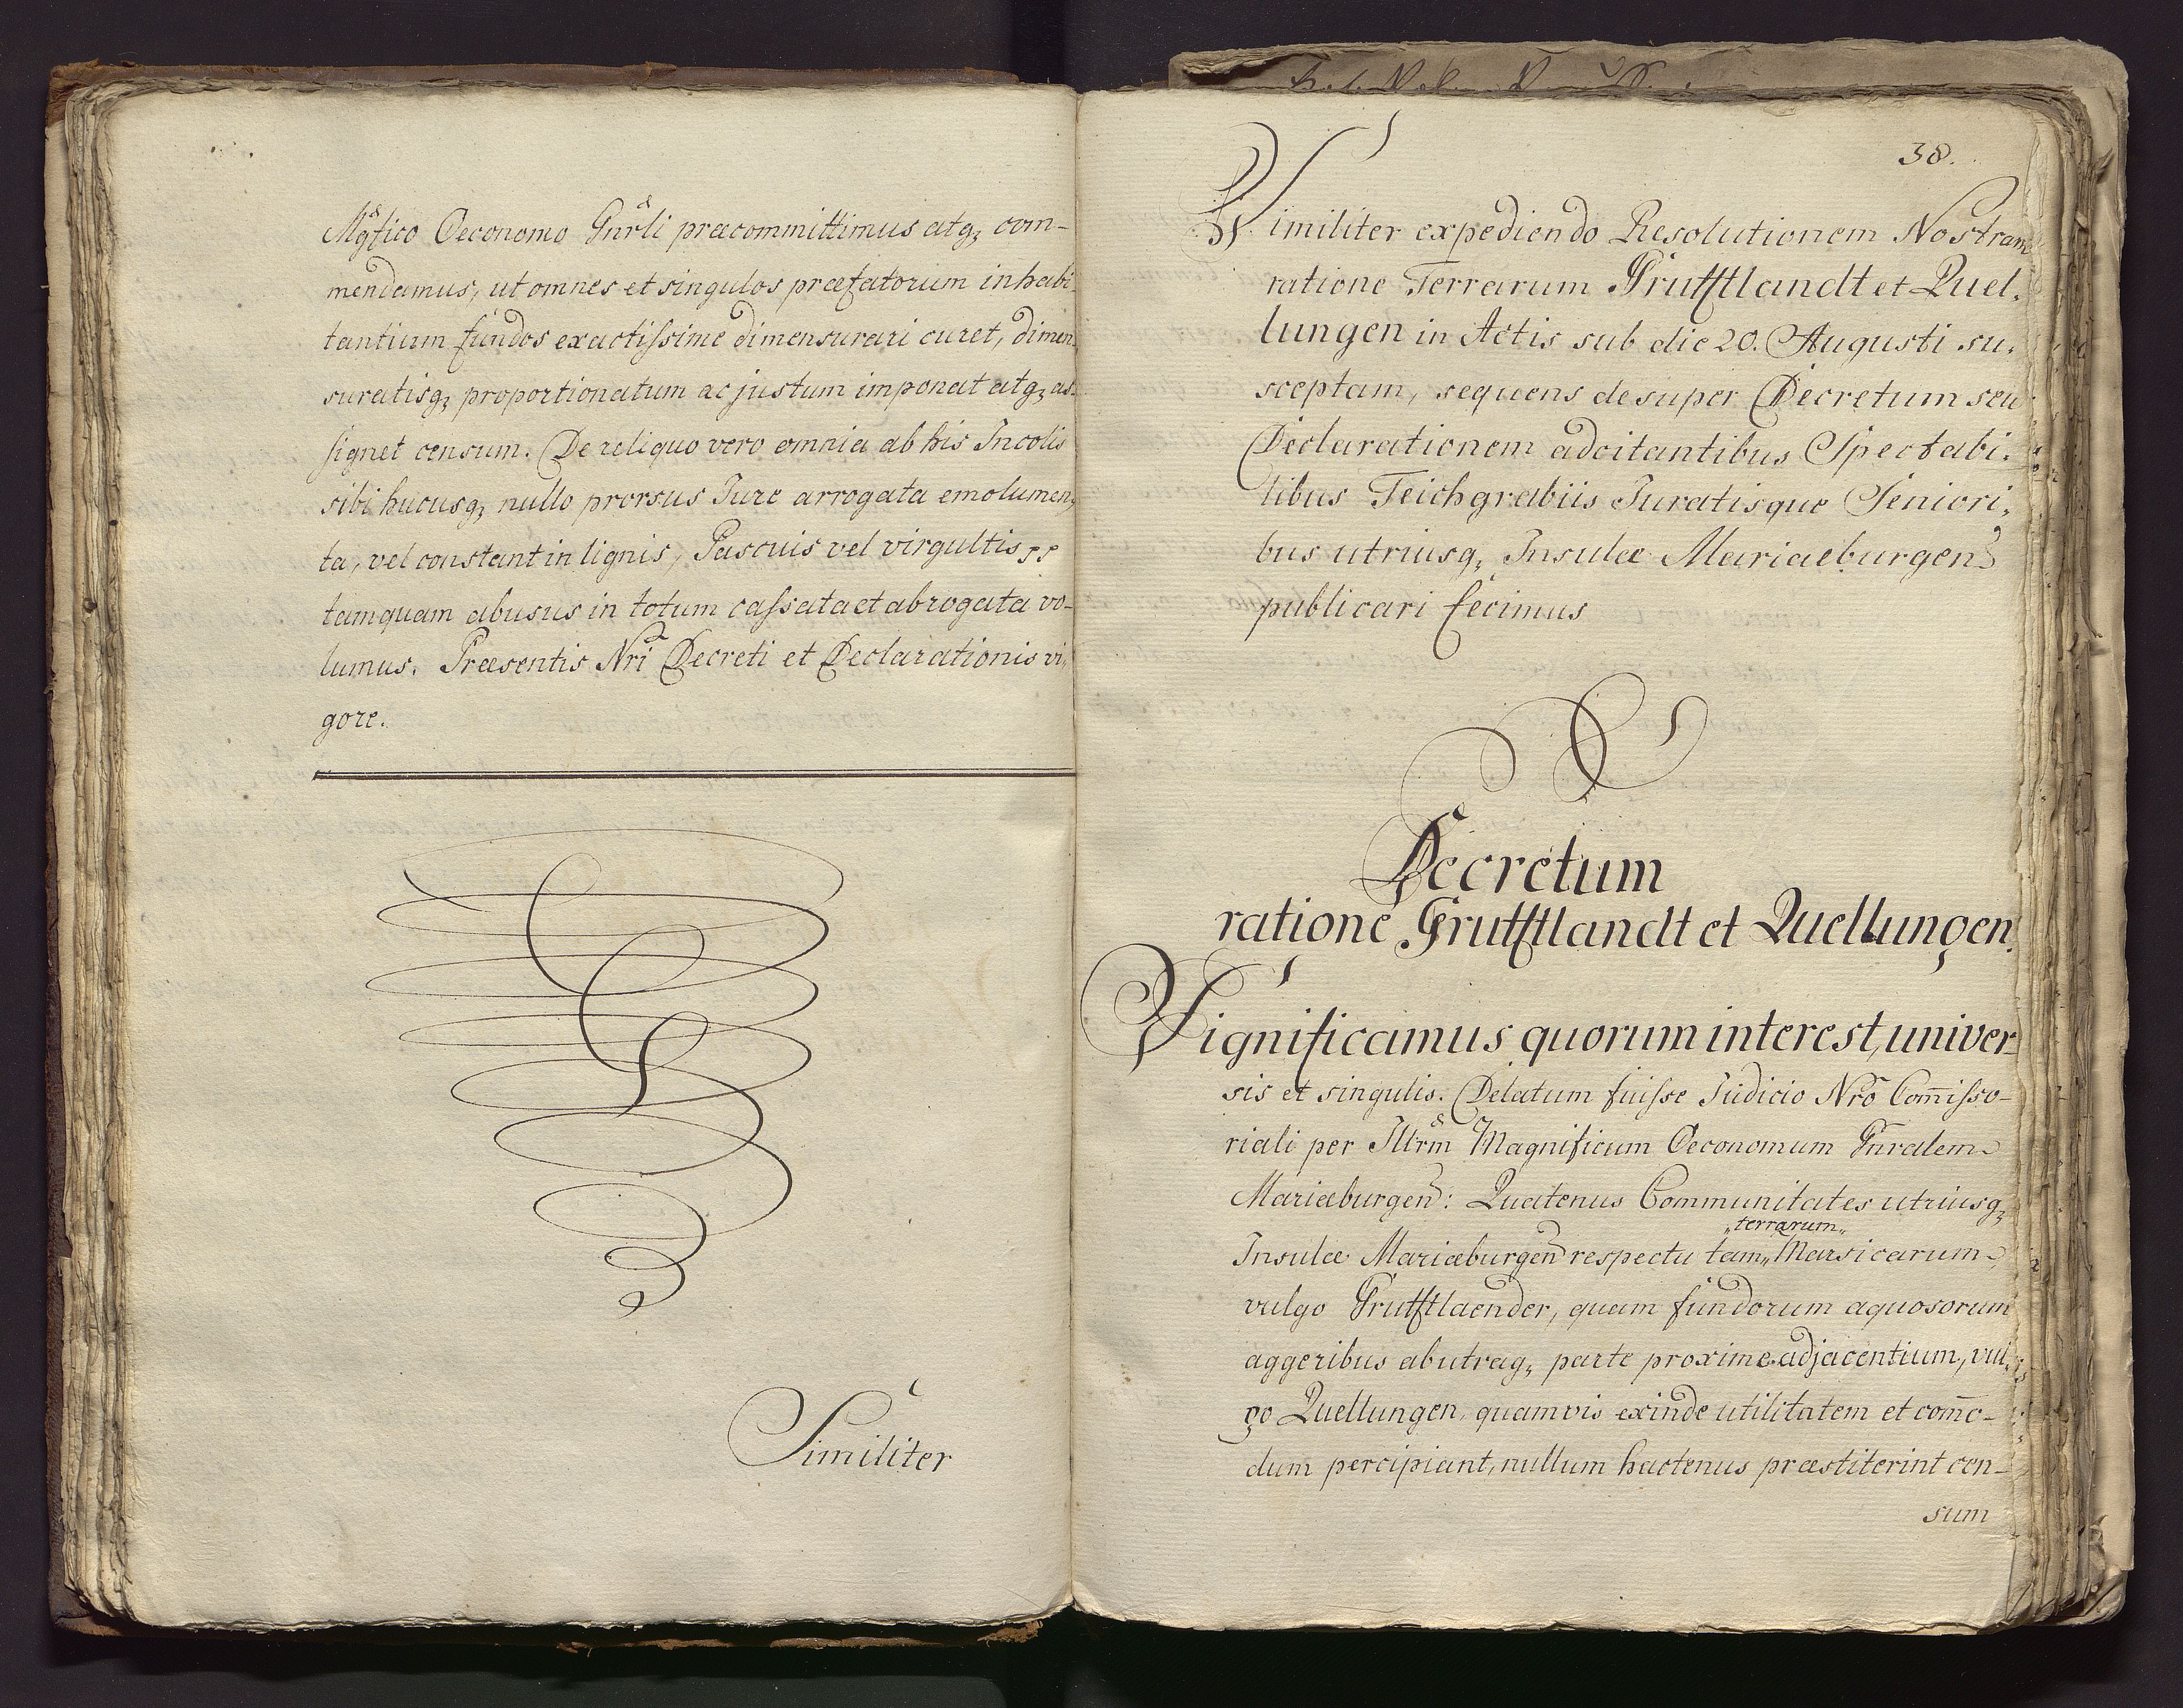 Mgfico Oeconomo Gnrli præcommittimus atq3 com-
mendamus, ut omnes et singulos præfatorum inhabi-
tantium fundos exactissime dimensurari curet, dimen-
suratisq3 proportionatum ac justum imponat atq3 as-
signet censum. De reliquo vero omnia ab his Incolis
sibi hucusq3 nullo prorsus Jure arrogata emolumen-
ta, vel constant in lignis, Pascuis vel virgultis pp
tamquam abusus in totum cassata et abrogata vo-
lumus. Præsentis Nri Decreti et Declarationis vi-
gore.
Similiter
38.
Similiter expediendo Resolutionem Nostram
ratione Terrarum Trufftlandt et Quel-
lungen in Actis sub die 20. Augusti su-
sceptam, sequens desuper Decretum seu
Declarationem adcitantibus Spectabi-
libus Teichgrabiis Juratisque Seniori-
bus utriusq3 Insulæ Mariaeburgen
publicari fecimus
Decretum
ratione Trufftlandt et Quellungen.
Significamus quorum interest, univer-
sis et singulis. Delatum fuisse Judicio Nrō Com̄isso-
riali per Illrm Magnificum Oeconomum Gnralem
Mariæburgen: Quatenus Communitates utriusq3
„terrarum„
Insulæ Mariæburgen respectu tam„ Marsicarum
vulgo Trufftlaender, quam fundorum aquosorum
aggeribus ab utraq3 parte proxime adjacentium, vul-
go Quellungen, quamvis exinde utilitatem et com̄o-
dum percipiant, nullum hactenus præstiterint cen-
sum